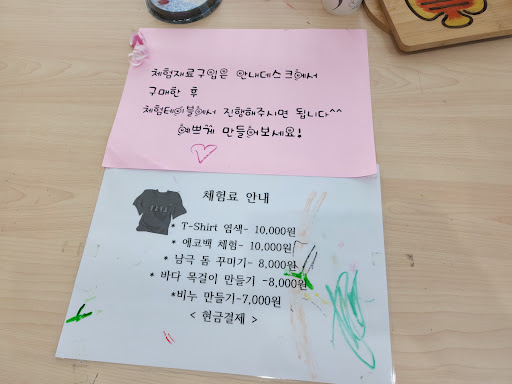 체험재료구입은 안내데스크에서
구매한 후
체험테이블에서 진행해주시면 됩니다^^
예쁘게 만들어보세요!
체험료 안내
* T-Shirt 염색- 10,000원
* 에코백 체험- 10,000원
* 남극 돔 꾸미기- 8,000원
* 바다 목걸이 만들기 -8,000원
*비누 만들기-7,000원
< 현금결제 >